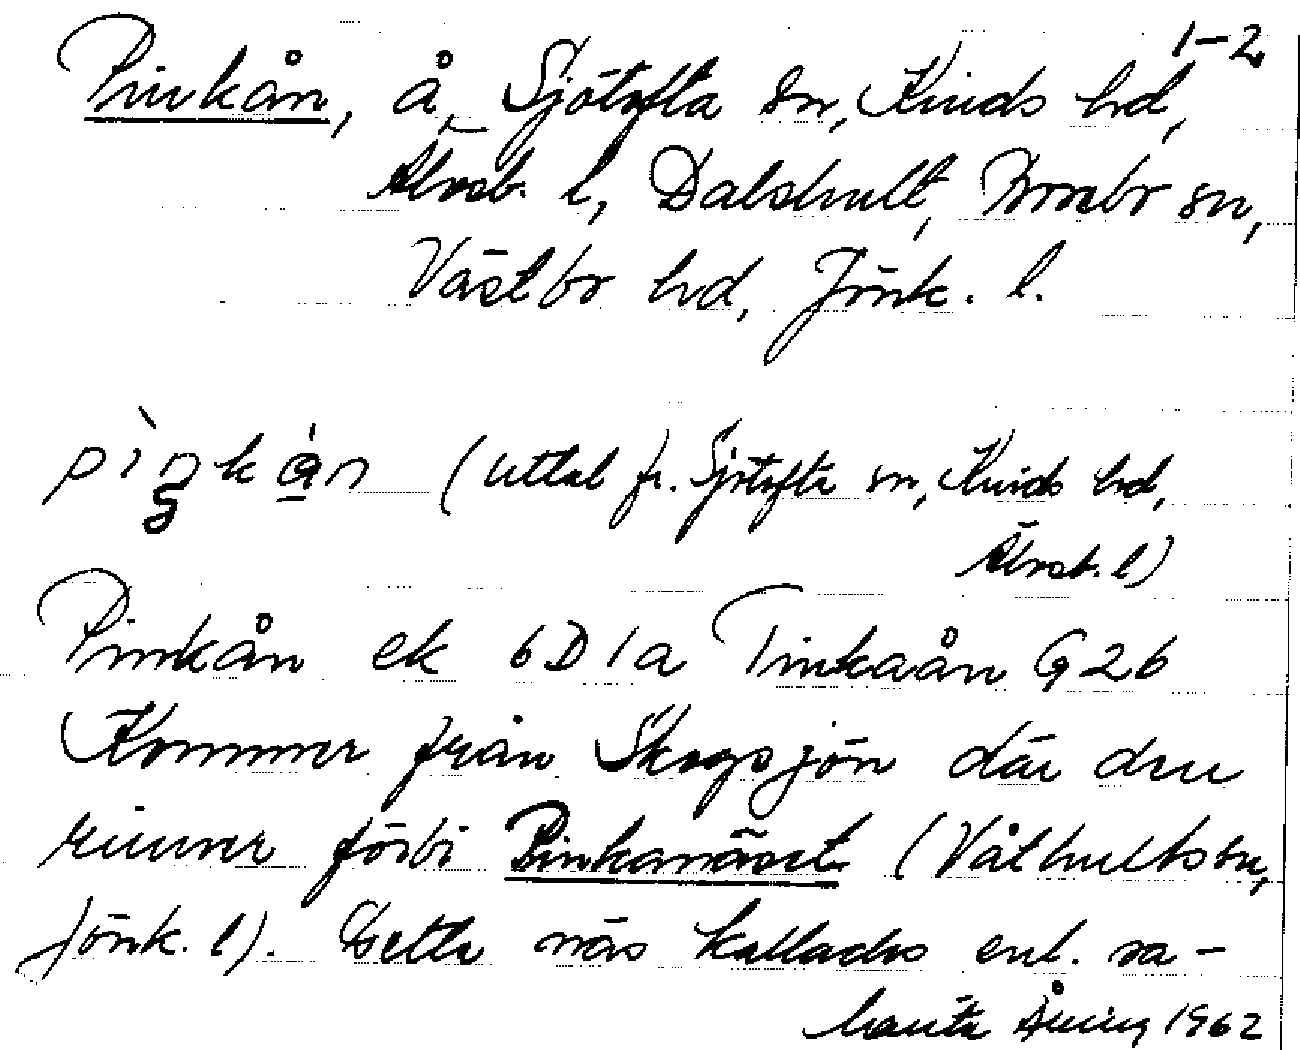 1-2
Pinkån, å, Sjötofta sn, Kinds hd,
Älvsb. l, Dalshult, sn,
Västbo hd, Jönk. l.
pìŋkån (uttal fr. Sjötofta sn, Kinds hd,
Älvsb. l)
Pinkån ek 6D1a Tinkaån G26
Kommer från Skogsjön där den
rinner förbi Pinkanäset (Våthults sn,
Jönk. l). Detta näs kallades enl. sa-
1962